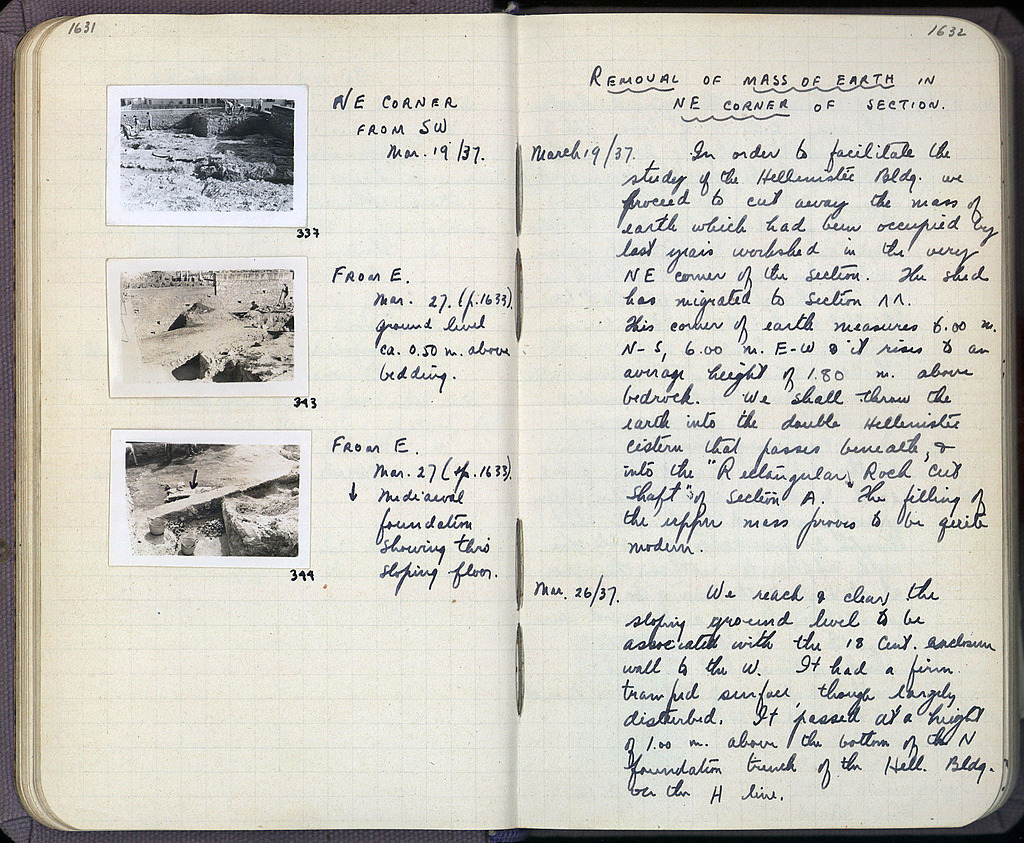 1631
NE CORNER
FROM SW
Mar. 19/37.
337
FROM E.
Mar. 27. (p. 1633).
ground level
ca. 0.50 m. above
bedding.
343
FROM E.
Mar. 27 (p. 1633).
↓ Mediaeval
foundation
showing thro
sloping floor.
344
1632
REMOVAL OF MASS OF EARTH IN
NE CORNER OF SECTION.
March 19/37. In order to facilitate the
study of the Hellenistic Bldg. we
proceed to cut away the mass of
earth which had been occupied by
last year's workshed in the very
NE corner of the section. The shed
has migrated to Section ΛΛ.
This corner of earth measures 6.00 m.
N-S, 6.00 m. E-W & it rises to an
average height of 1.80 m. above
bedrock. We shall throw the
earth into the double Hellenistic
cistern that passes beneath, &
into the "Rectangular Rock Cut
Shaft" of Section A. The filling of
the upper mass proves to be quite
modern.
Mar. 26/37. We reach & clear the
sloping ground level to be
associated with the 18 Cent. enclosure
wall to the W. It had a firm
tramped surface, though largely
disturbed. It passed at a height
of 1.00 m. above the bottom of the N
foundation trench of the Hell. Bldg.
on the H line.